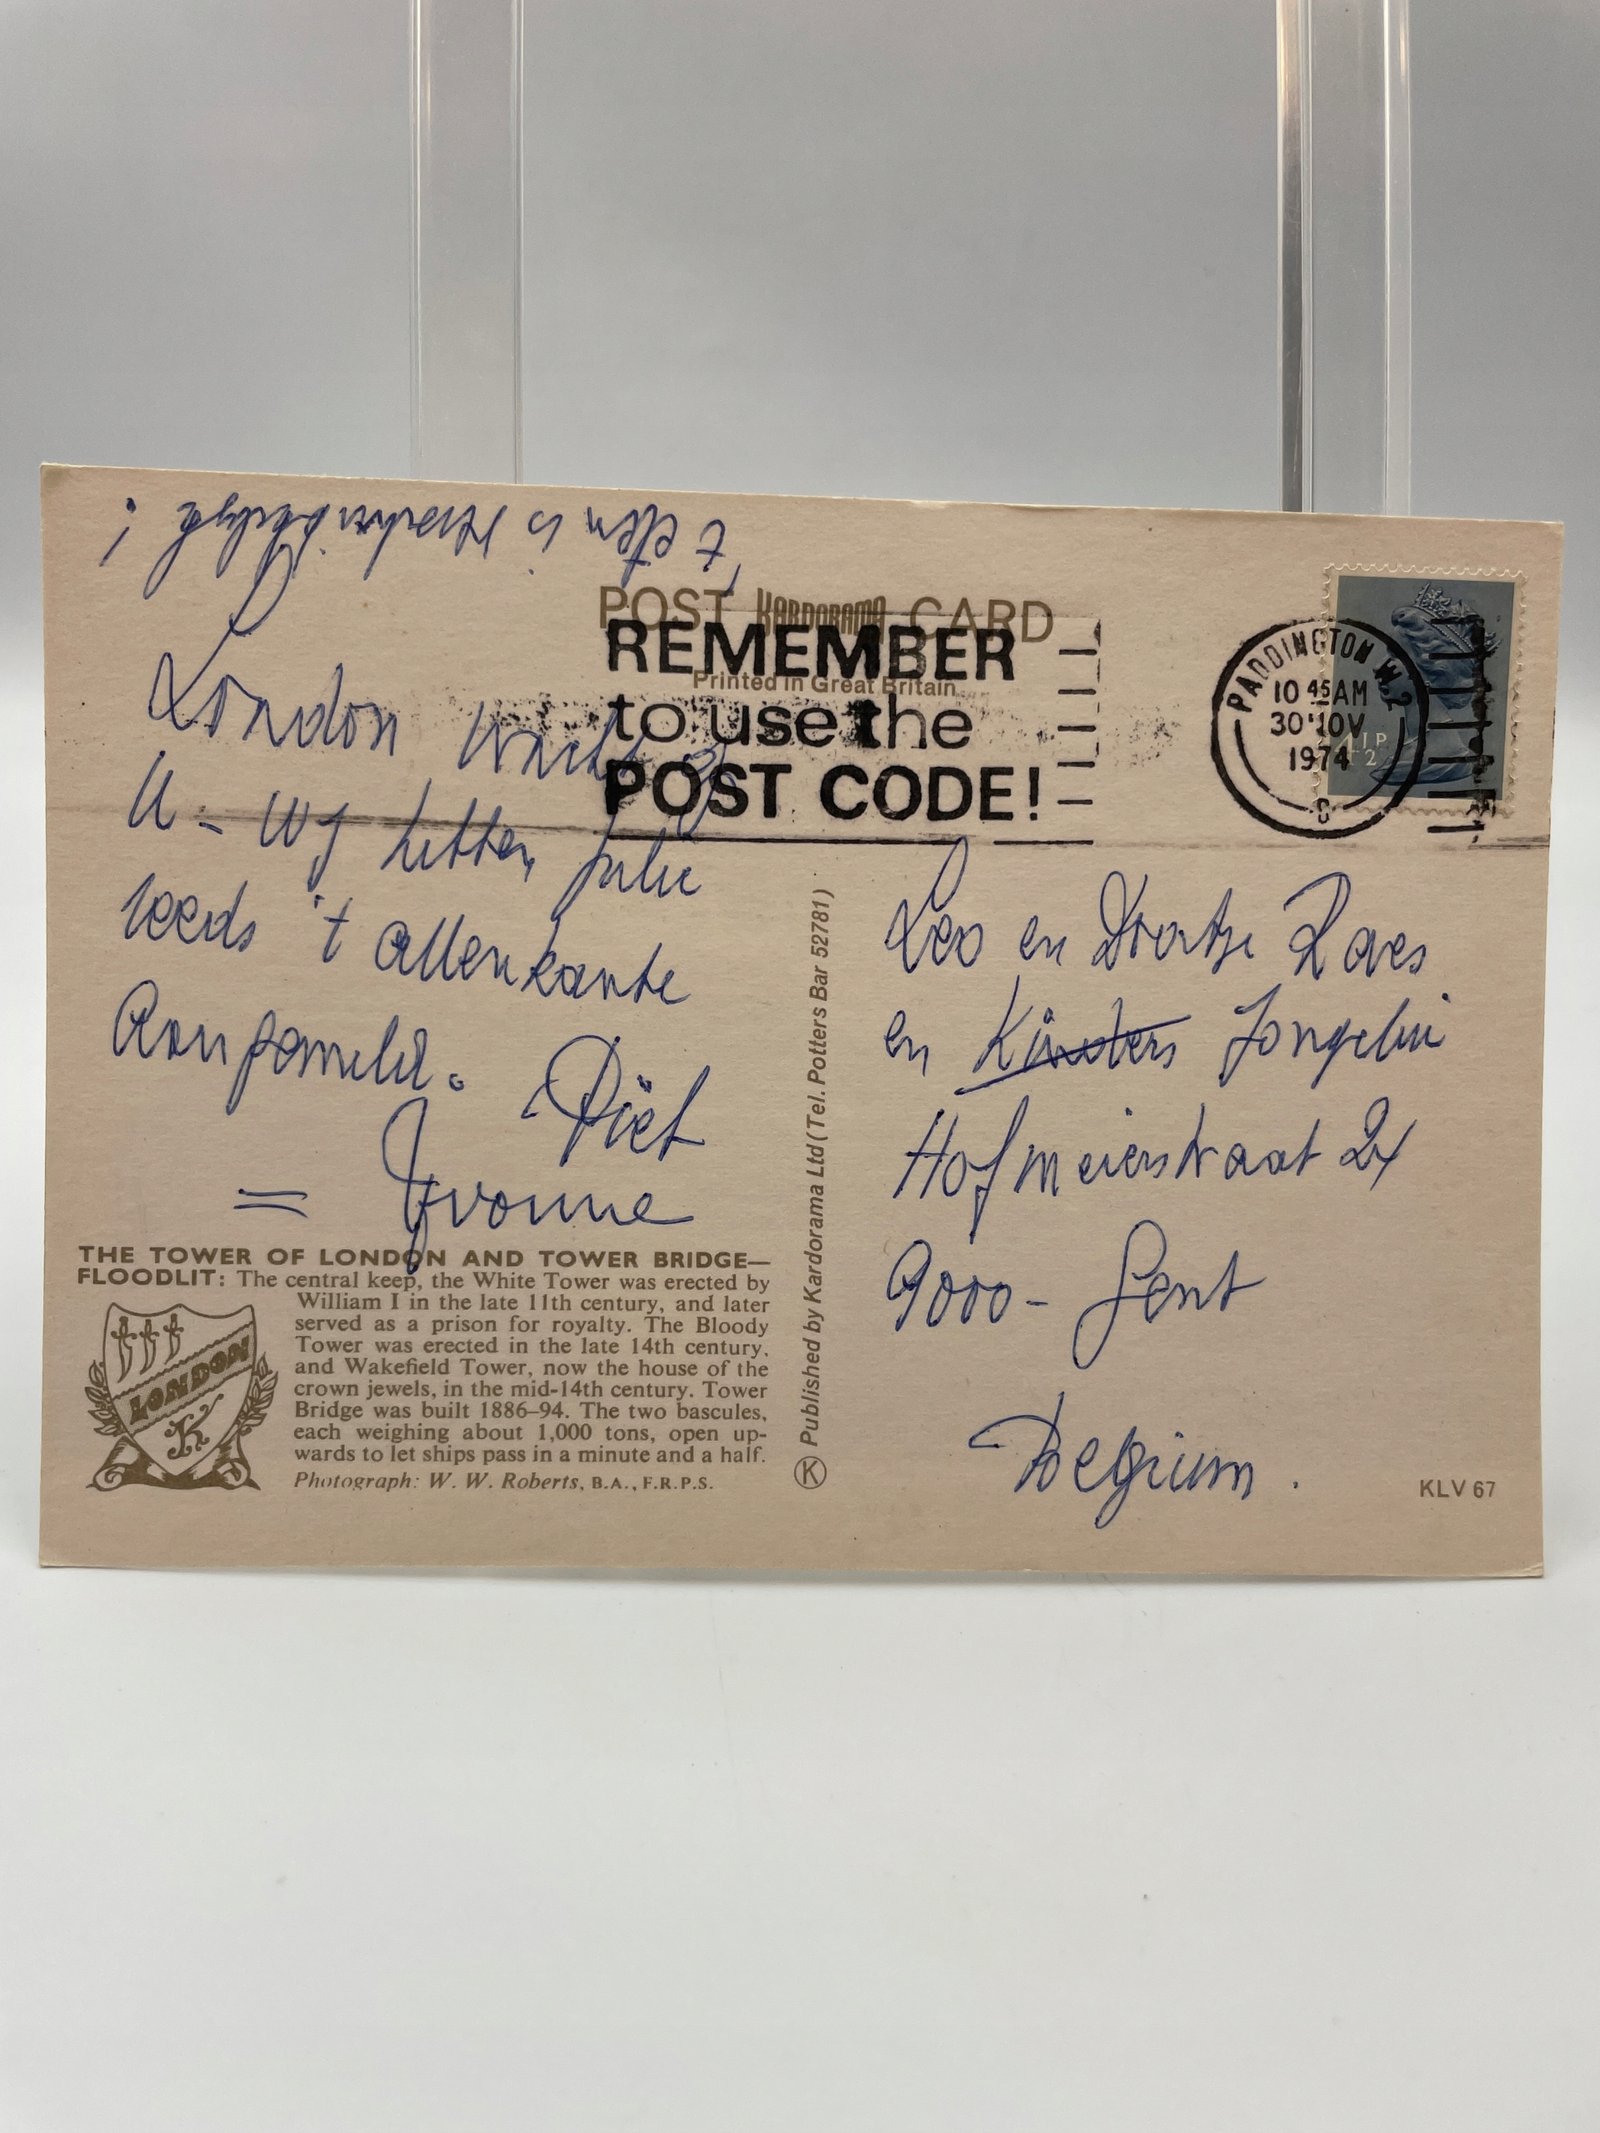 't eten is
London wacht op
U - Wij hebben jullie
reeds 't allenkante
Piet
= Yvonne
POST KARDORAMA CARD
Printed in Great Britain
REMEMBER
to use the
POST CODE!
PADDINGTON W.2
10 45 AM
30 NOV
1974
C
THE TOWER OF LONDON AND TOWER BRIDGE—
FLOODLIT: The central keep, the White Tower was erected by
William I in the late 11th century, and later
served as a prison for royalty. The Bloody
Tower was erected in the late 14th century,
and Wakefield Tower, now the house of the
crown jewels, in the mid-14th century. Tower
Bridge was built 1886–94. The two bascules,
each weighing about 1,000 tons, open up-
wards to let ships pass in a minute and a half.
Photograph: W. W. Roberts, B.A., F.R.P.S.
LONDON
K
K Published by Kardorama Ltd (Tel. Potters Bar 52781)
Leo en Raes
en Kinders
Hofmeierstraat
9000 - Gent
Belgium.
KLV 67